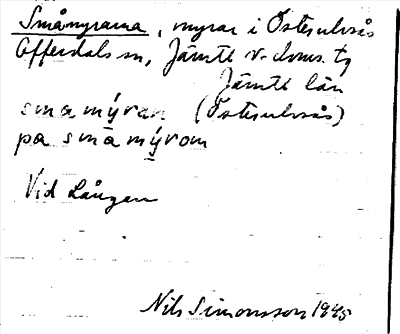 Småmyrarna, myrar i Österulvsås
Offerdals sn, Jämtl. v. doms. tg
Jämtl. län
småmýran (Österulvsås)
på småmýrom
Vid Långan
Nils Simonsson 1945